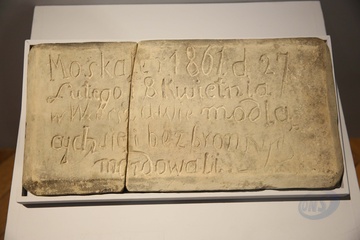 Moskale 1861 d 27
Lutego 8 Kwietnia
w Warszawie modlą
cych się i bezbronnych
mordowali